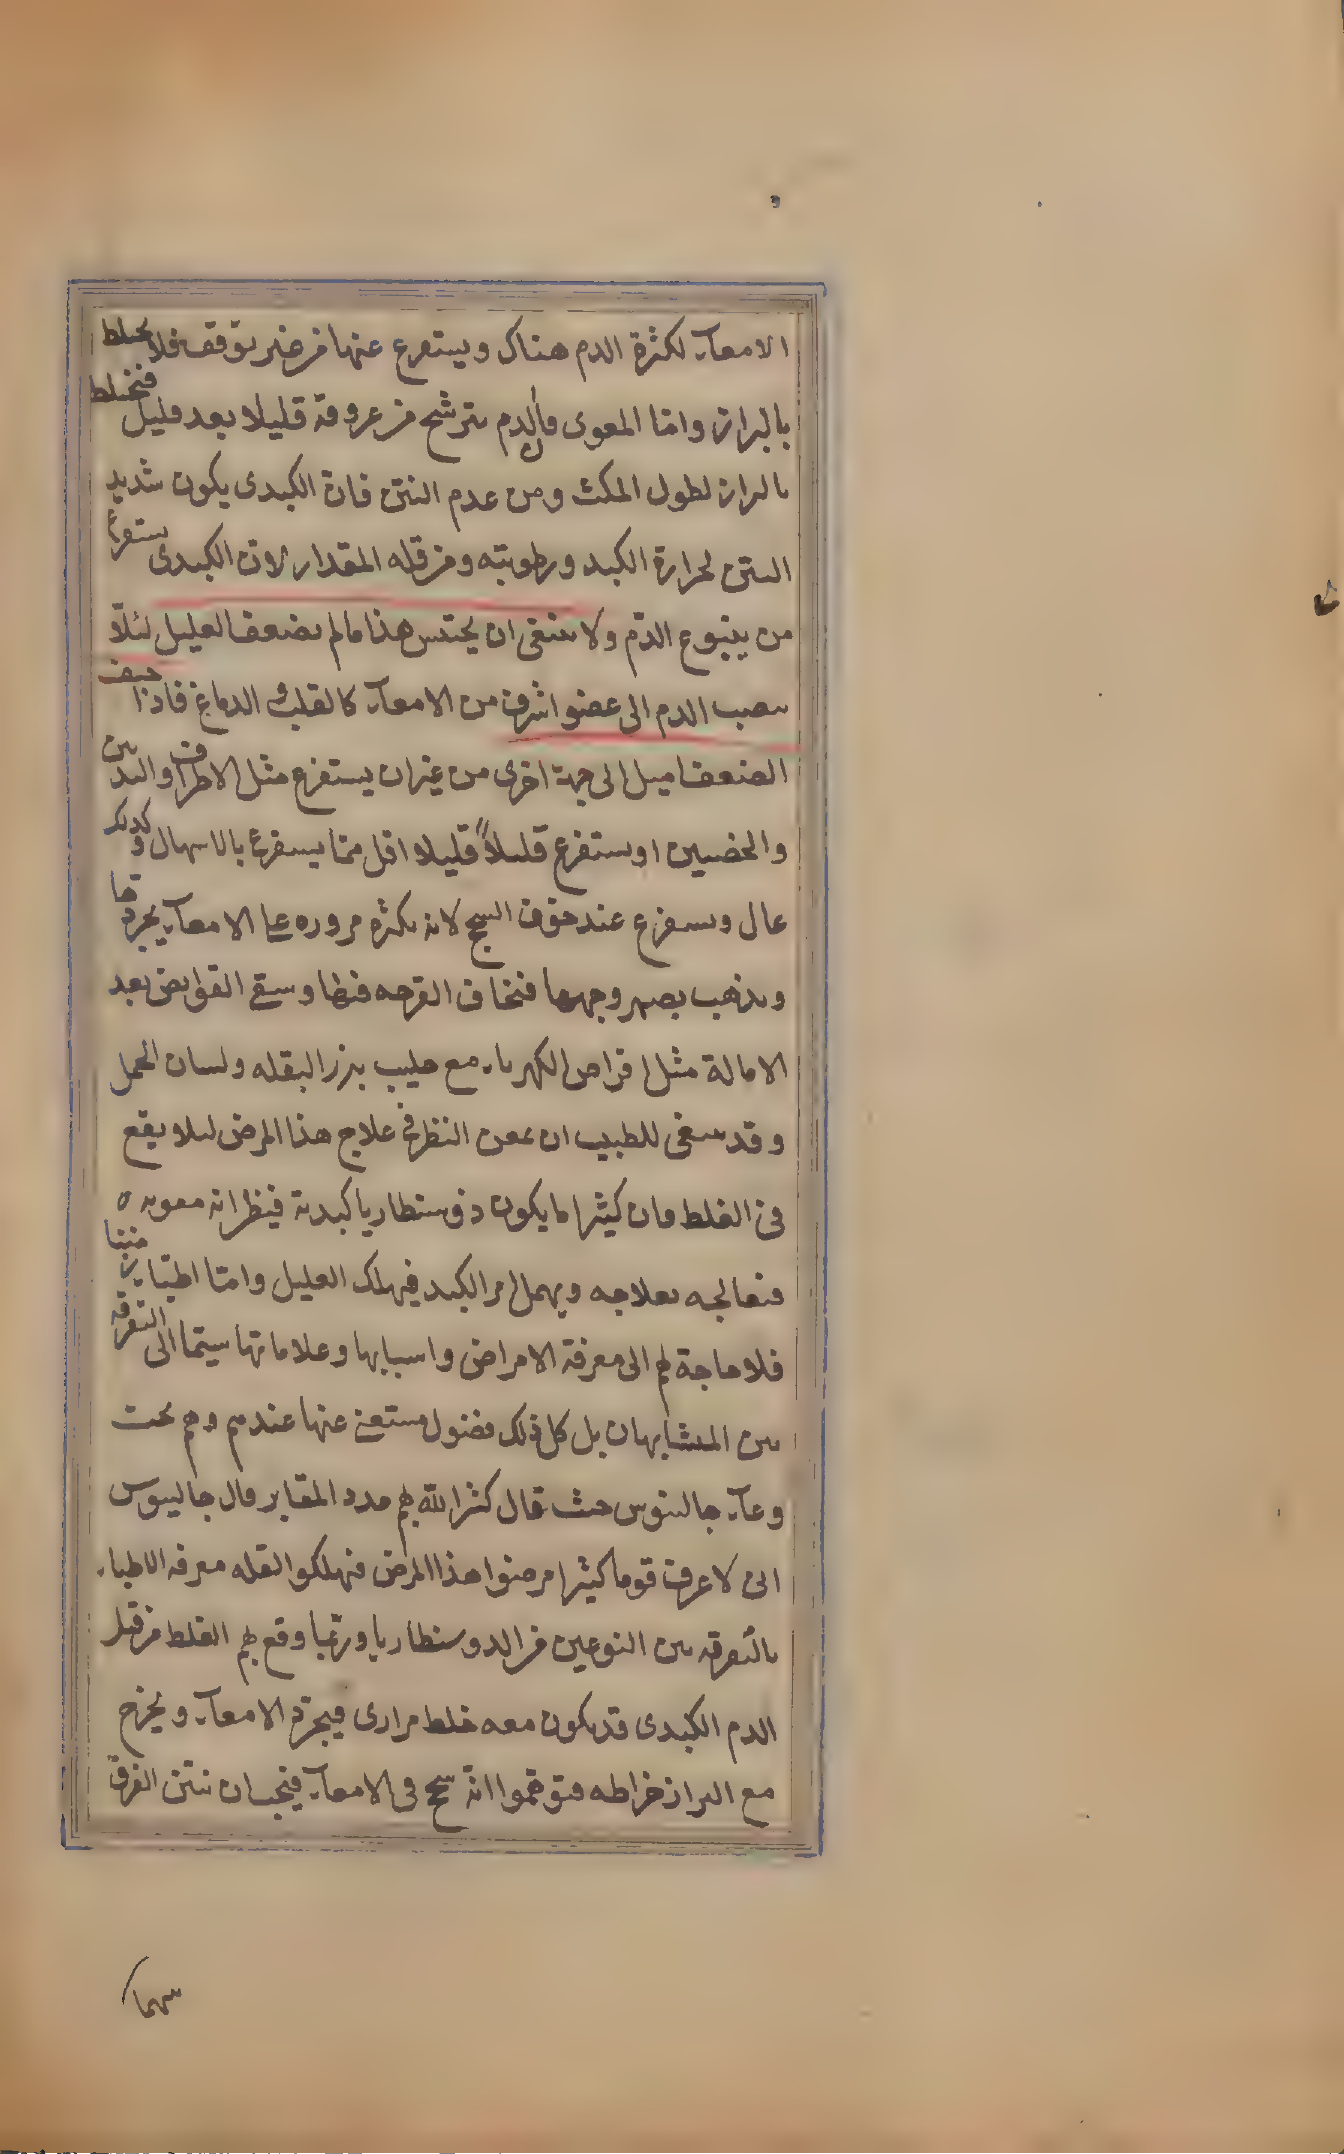 الامعآء لكثرة الدم هناك ويستفرغ عنها من غير توقف فلا يختلط
بالبراز واما المعوى فالدم يترشح من عروقه قليلا بعد قليل فيختلط
بالبراز لطول المكث ومن عدم النتن فان الكبدى يكون شديد
النتن لحرارة الكبد ورطوبته ومن قله المقدار لان الكبدى يستفرغ
من ينبوع الدم ولا ينبغى ان يحتبس هذا مالم يضعف العليل لئلا
ينصب الدم الى عضو اشرف من الامعآء كالقلب والدماغ فاذا خيف
الضعف اميل الى جهة اخرى من غير ان يستفرغ مثل الاطراف واليدين
والخصيين او يستفرغ قليلا قليلا اقل مما يستفرغ بالاسهال وكذلك
عال ويستفرغ عند خوف السحج لانه بكثرة مروره على الامعآء يجردها
ويذهب بصهروجها فيخاف القرحه ويسقى القوابض بعد
الامالة مثل اقراص الكهرباء مع حليب بزر البقله ولسان الحمل
وقد ينبغى للطبيب ان يمعن النظر فى علاج هذا المرض لئلا يقع
فى الغلط فان كثيرا ما يكون ذوسنطاريا كبدية فيظن انه معويه
فيعالجه بعلاجه ويهمل امر الكبد فيهلك العليل واما اطباء زمننا
فلا حاجة لهم الى معرفة الامراض واسبابها وعلاماتها سيما الى التفرقه
بين المتشابهات بل كل ذلك فضول مستغنى عنها عندهم وهم تحت
دعآء جالينوس حيث قال كثر الله لهم مدد المقابر قال جالينوس
انى لاعرف قوما كثيرا مرضوا هذا المرض فهلكوا لقله معرفه الاطباء
بالتفرقه بين النوعين من الدوسنطاريا وربما وقع لهم الغلط من قبل
الدم الكبدى قد يكون معه خلط مرارى فيجرد الامعآء ويخرج
مع البراز خراطه فتوهموا انه سحج فى الامعآء فيجب ان نبين الفرق
سهما